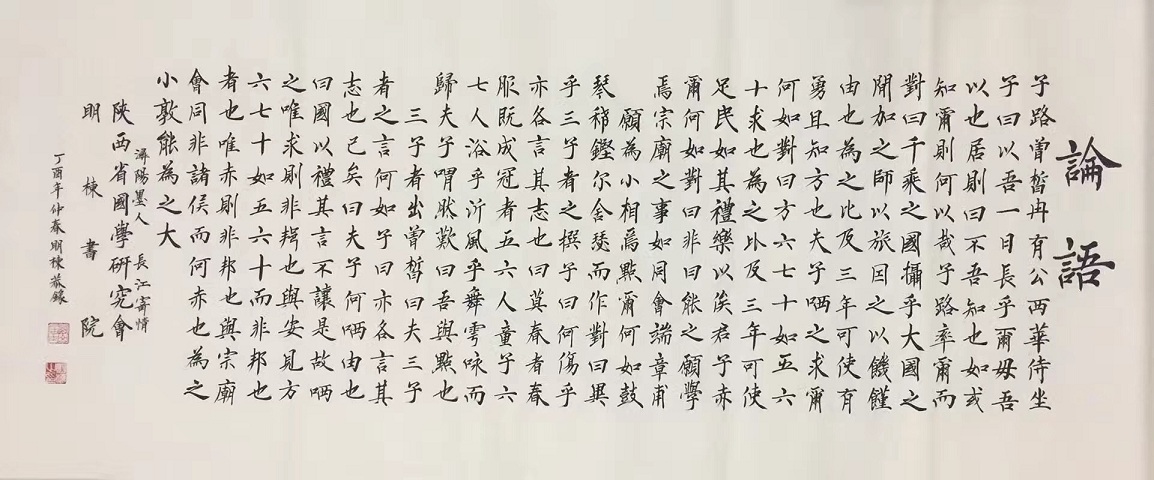 論語
子路曾皙冉有公西華侍坐
子曰以吾一日長乎爾毋吾
以也居則曰不吾知也如或
知爾則何以哉子路率爾而
對曰千乘之國攝乎大國之
間加之師以旅因之以饑饉
由也為之比及三年可使有
勇且知方也夫子哂之求爾
何如對曰方六七十如五六
十求也為之比及三年可使
足民如其禮樂以俟君子赤
爾何如對曰非曰能之願學
焉宗廟之事如同會端章甫
願為小相焉點爾何如鼓
琴稀鏗尔舍瑟而作對曰異
乎三子者之撰子曰何傷乎
亦各言其志也曰莫春者春
服既成冠者五六人童子六
七人浴乎沂風乎舞雩咏而
歸夫子喟然歎曰吾與點也
三子者出曾皙曰夫三子
者之言何如子曰亦各言其
志也已矣曰夫子何哂由也
曰國以禮其言不讓是故哂
之唯求則非邦也與安見方
六七十如五六十而非邦也
者也唯赤則非邦也與宗廟
會同非諸侯而何赤也為之
小敦能為之大
陝西省國學研究會
陽墨人 長江寄情
明棟書院
丁酉年仲春明棟恭錄